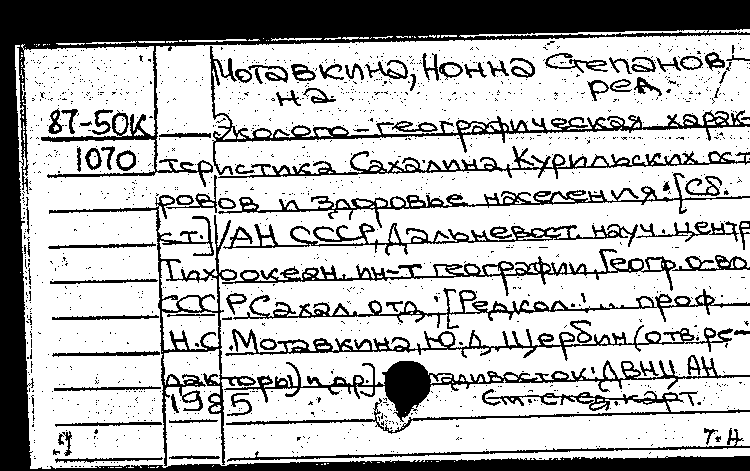 Мотавкина, Нонна Степанов-
на ред.
87-50К Эколого-географическая харак-
1070 теристика Сахалина, Курильских ост
ровов и здоровье населения: [Сб.
ст.] / АН СССР, Дальневост. науч. центр
Тихоокеан. ин-т географии, Геогр. о-во
СССР. Сахал. отд.; [Редкол.: ... проф.
Н.С. Мотавкина, Ю.Д. Щербин (отв. ре-
дакторы) и др.]. адивосток: ДВНЦ АН
1985 См. след. карт.
Т-Н